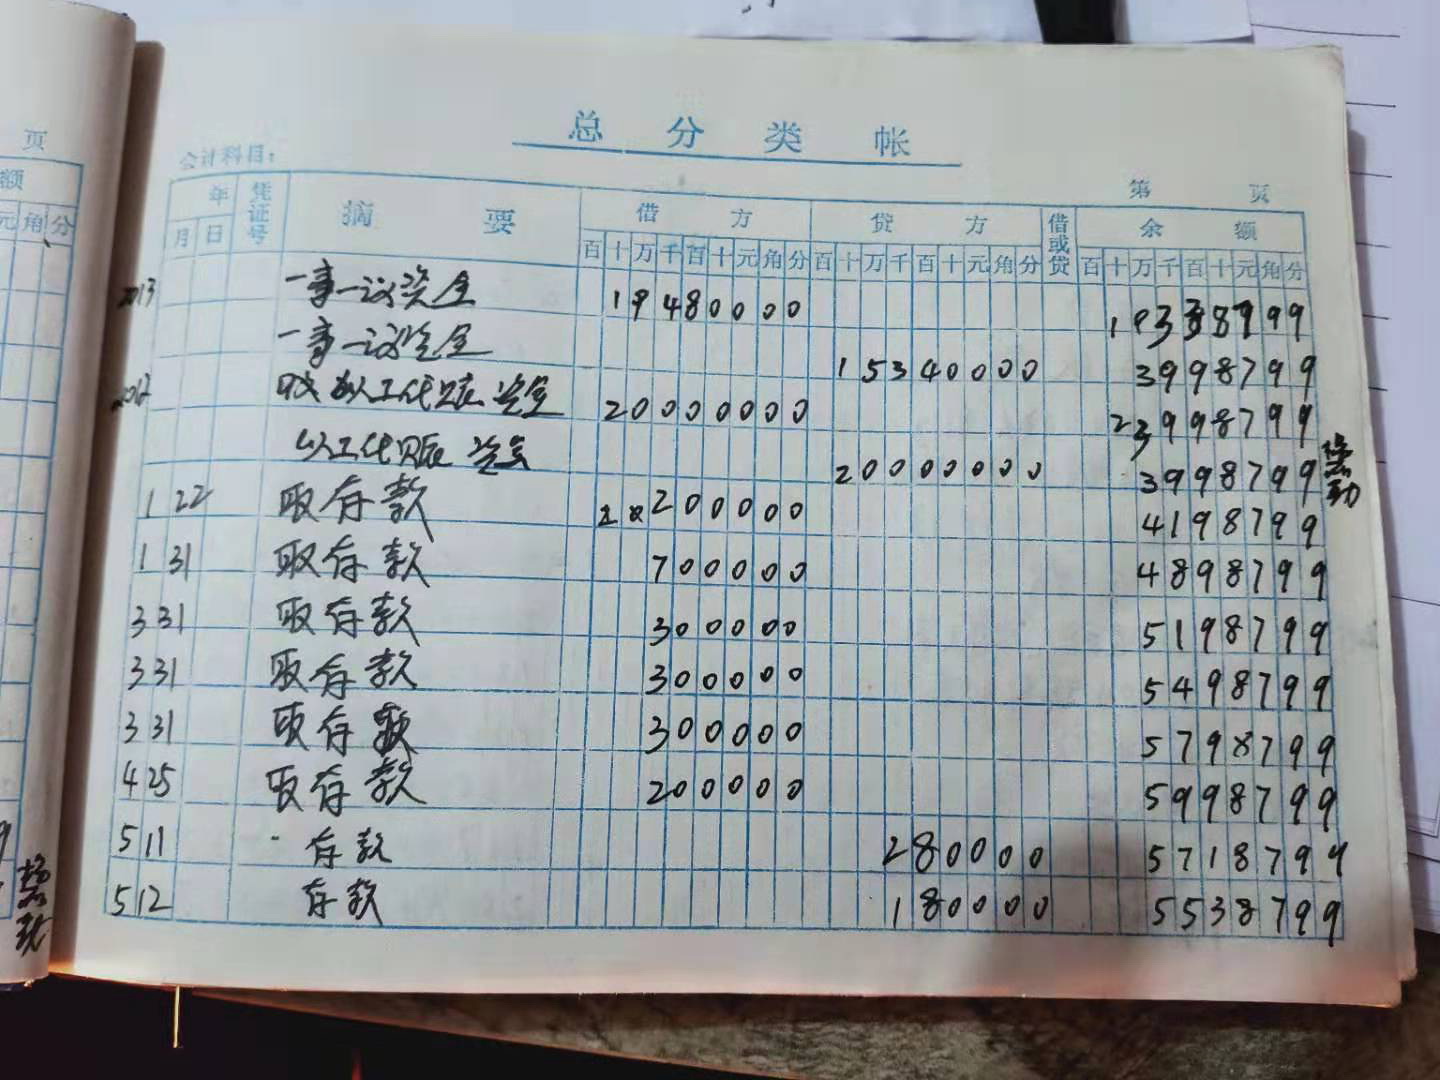 页
额
元 角 分
总 分 类 帐
会计科目:
第 页
年 凭证号 摘 要 借 方 贷 方 借或贷 余 额
月 日 百 十 万 千 百 十 元 角 分 百 十 万 千 百 十 元 角 分 百 十 万 千 百 十 元 角 分
2013 一事一议资金 19480000 19338799
一事一议资金 15340000 3998799
以工代赈资金 20000000 23998799
以工代赈资金 20000000 3998799
1 22 取存款 200000 4198799
1 31 取存款 700000 4898799
3 31 取存款 300000 5198799
3 31 取存款 300000 5498799
3 31 取存款 300000 5798799
4 25 取存款 200000 5998799
5 11 存款 280000 5718799
5 12 存款 180000 5538799